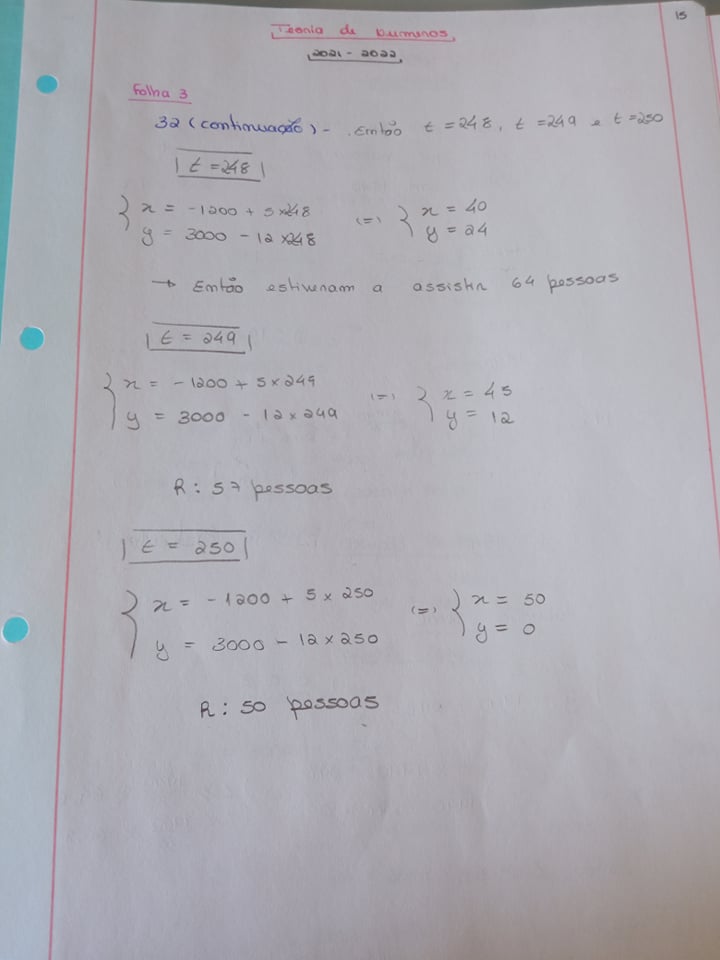 15
Teoria de Números
2021 - 2022
Folha 3
32 (continuação) - Então t = 248, t = 249 e t = 250
t = 248
x = -1200 + 5 x 248 (=) x = 40
y = 3000 - 12 x 248 y = 24
→ Então estiveram a assistir 64 pessoas
t = 249
x = -1200 + 5 x 249 (=) x = 45
y = 3000 - 12 x 249 y = 12
R: 57 pessoas
t = 250
x = -1200 + 5 x 250 (=) x = 50
y = 3000 - 12 x 250 y = 0
R: 50 pessoas